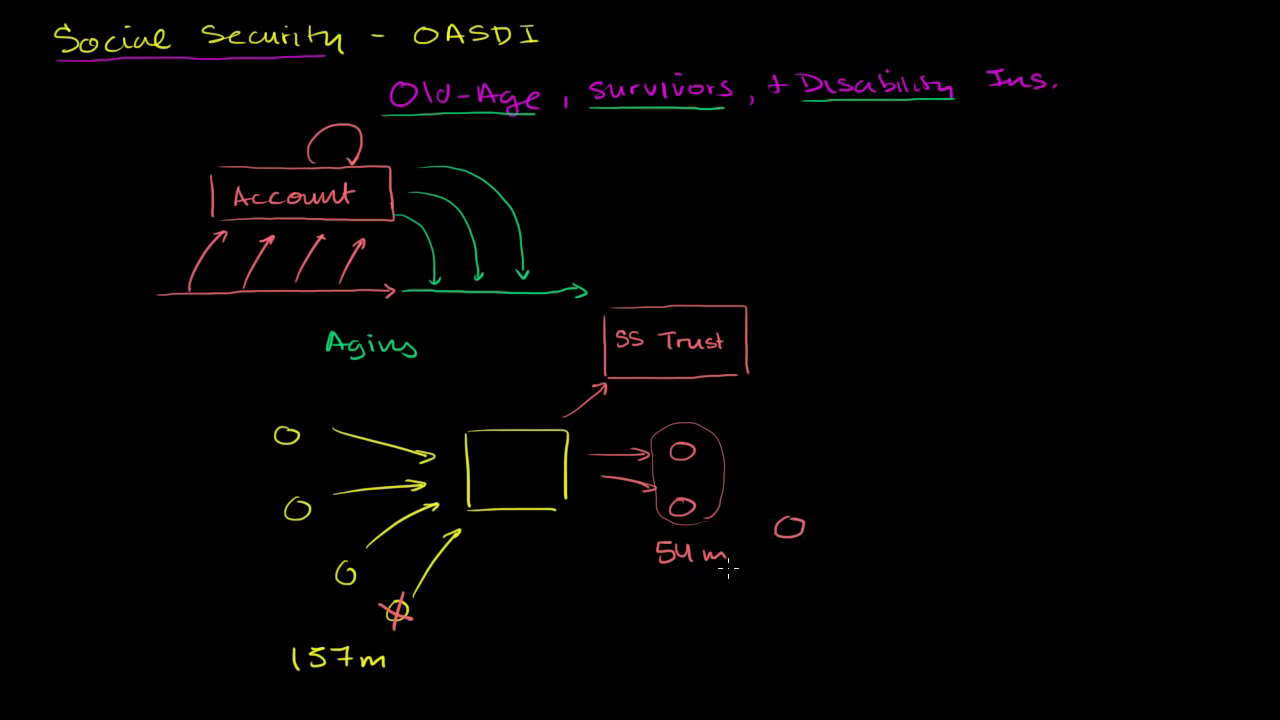 Social Security - OASDI
Old-Age, survivors, + Disability Ins.
Account
Aging
SS Trust
54 m
157m